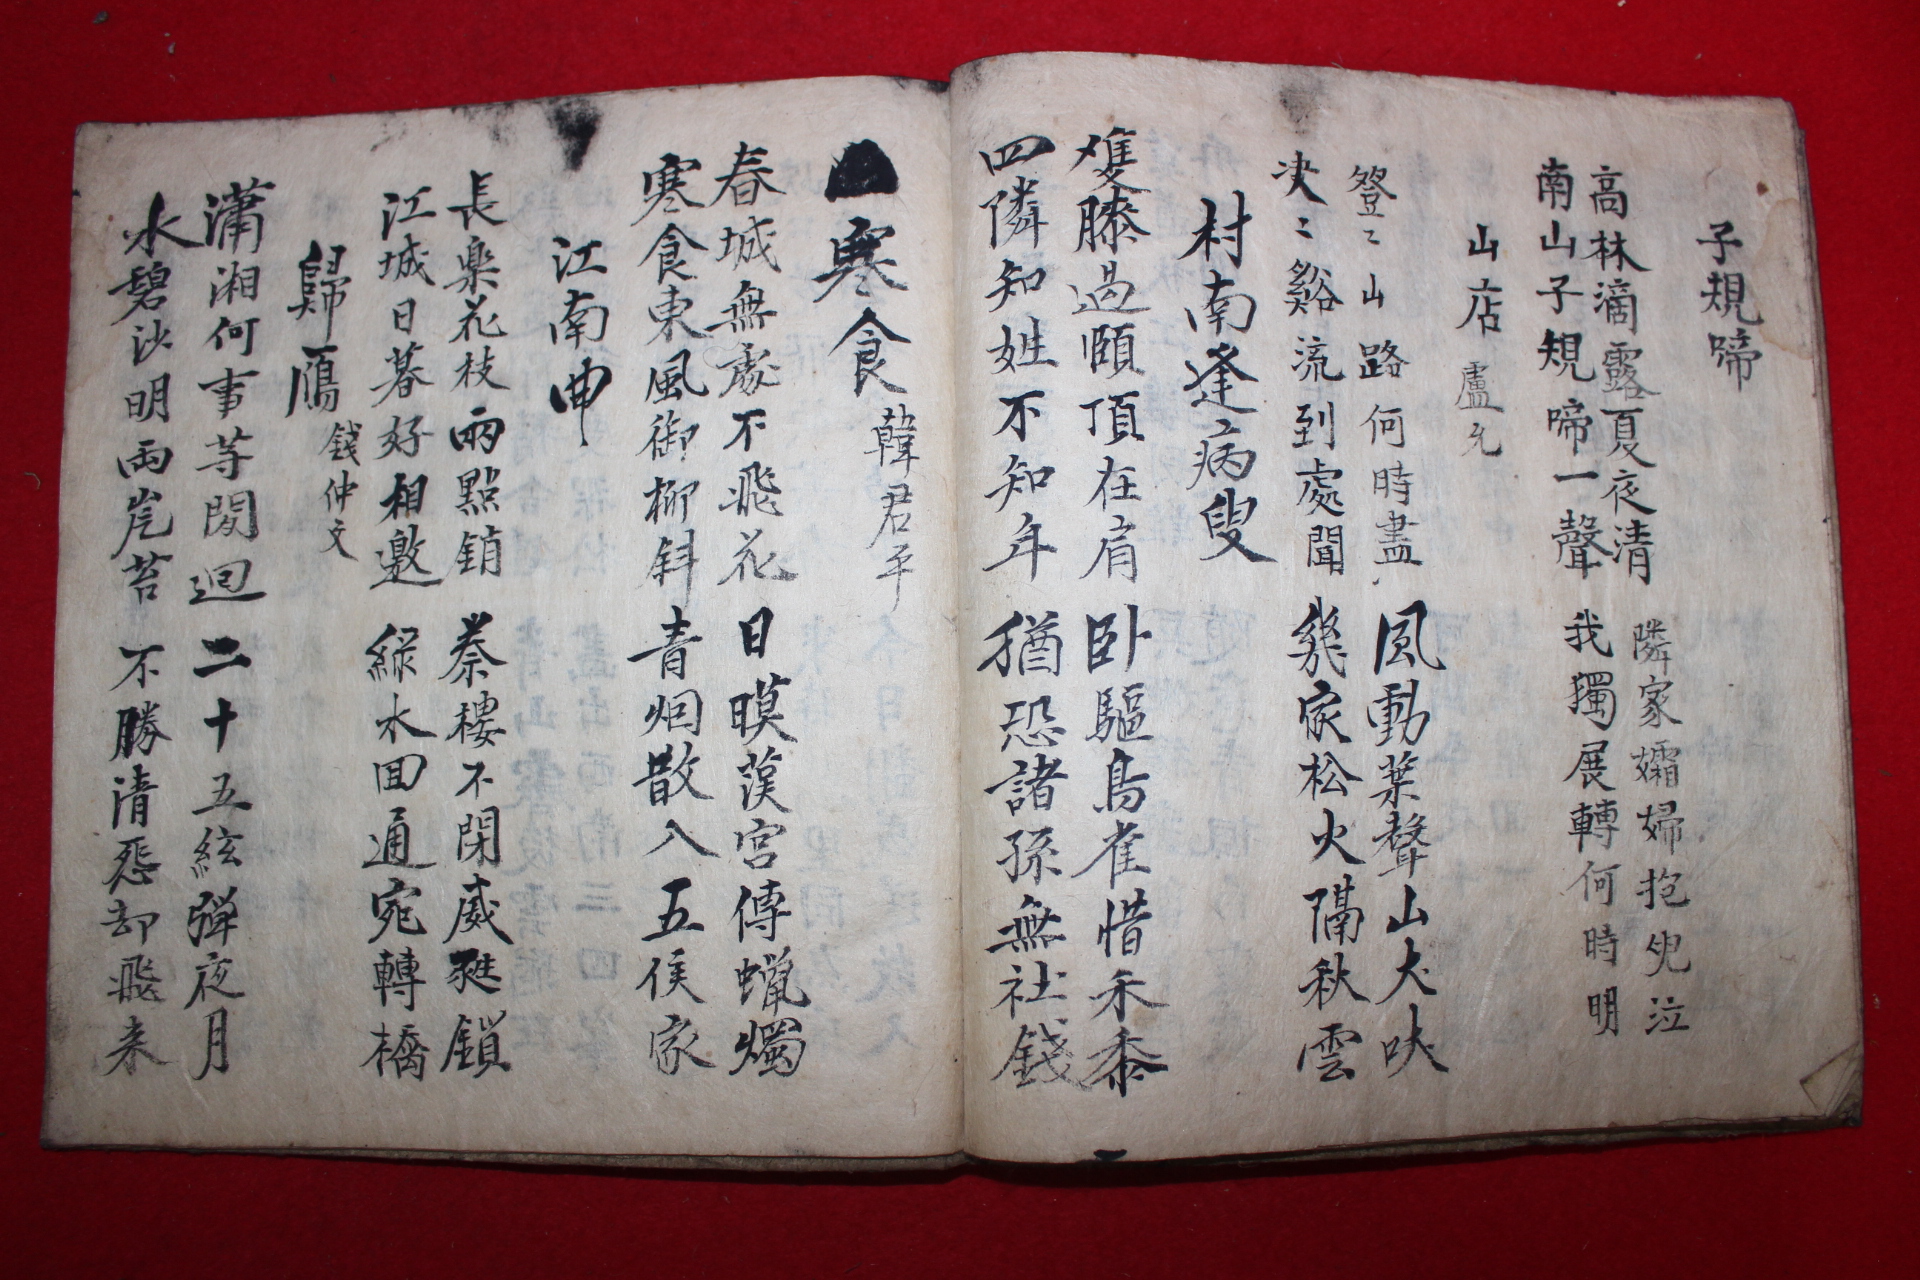 子規啼
高林滴露夏夜清 隣家孀婦抱兒泣
南山子規啼一聲 我獨展轉何時明
山店 盧允
登〻山路何時盡 風動葉聲山犬吠
决〻谿流到處聞 幾家松火隔秋雲
村南逢病叟
雙膝過頤頂在肩 卧驅鳥雀惜禾黍
四隣知姓不知年 猶恐諸孫無社錢
寒食 韓君平
春城無處不飛花 日暯漢宮傳蠟燭
寒食東風御柳斜 青烟散入五侯家
江南曲
長樂花枝雨點銷 秦樓不閉葳甤鎖
江城日暮好相邀 綠水回通宛轉橋
歸鴈 錢仲文
瀟湘何事等閑迴 二十五絃彈夜月
水碧沙明兩岸苔 不勝清怨却飛来